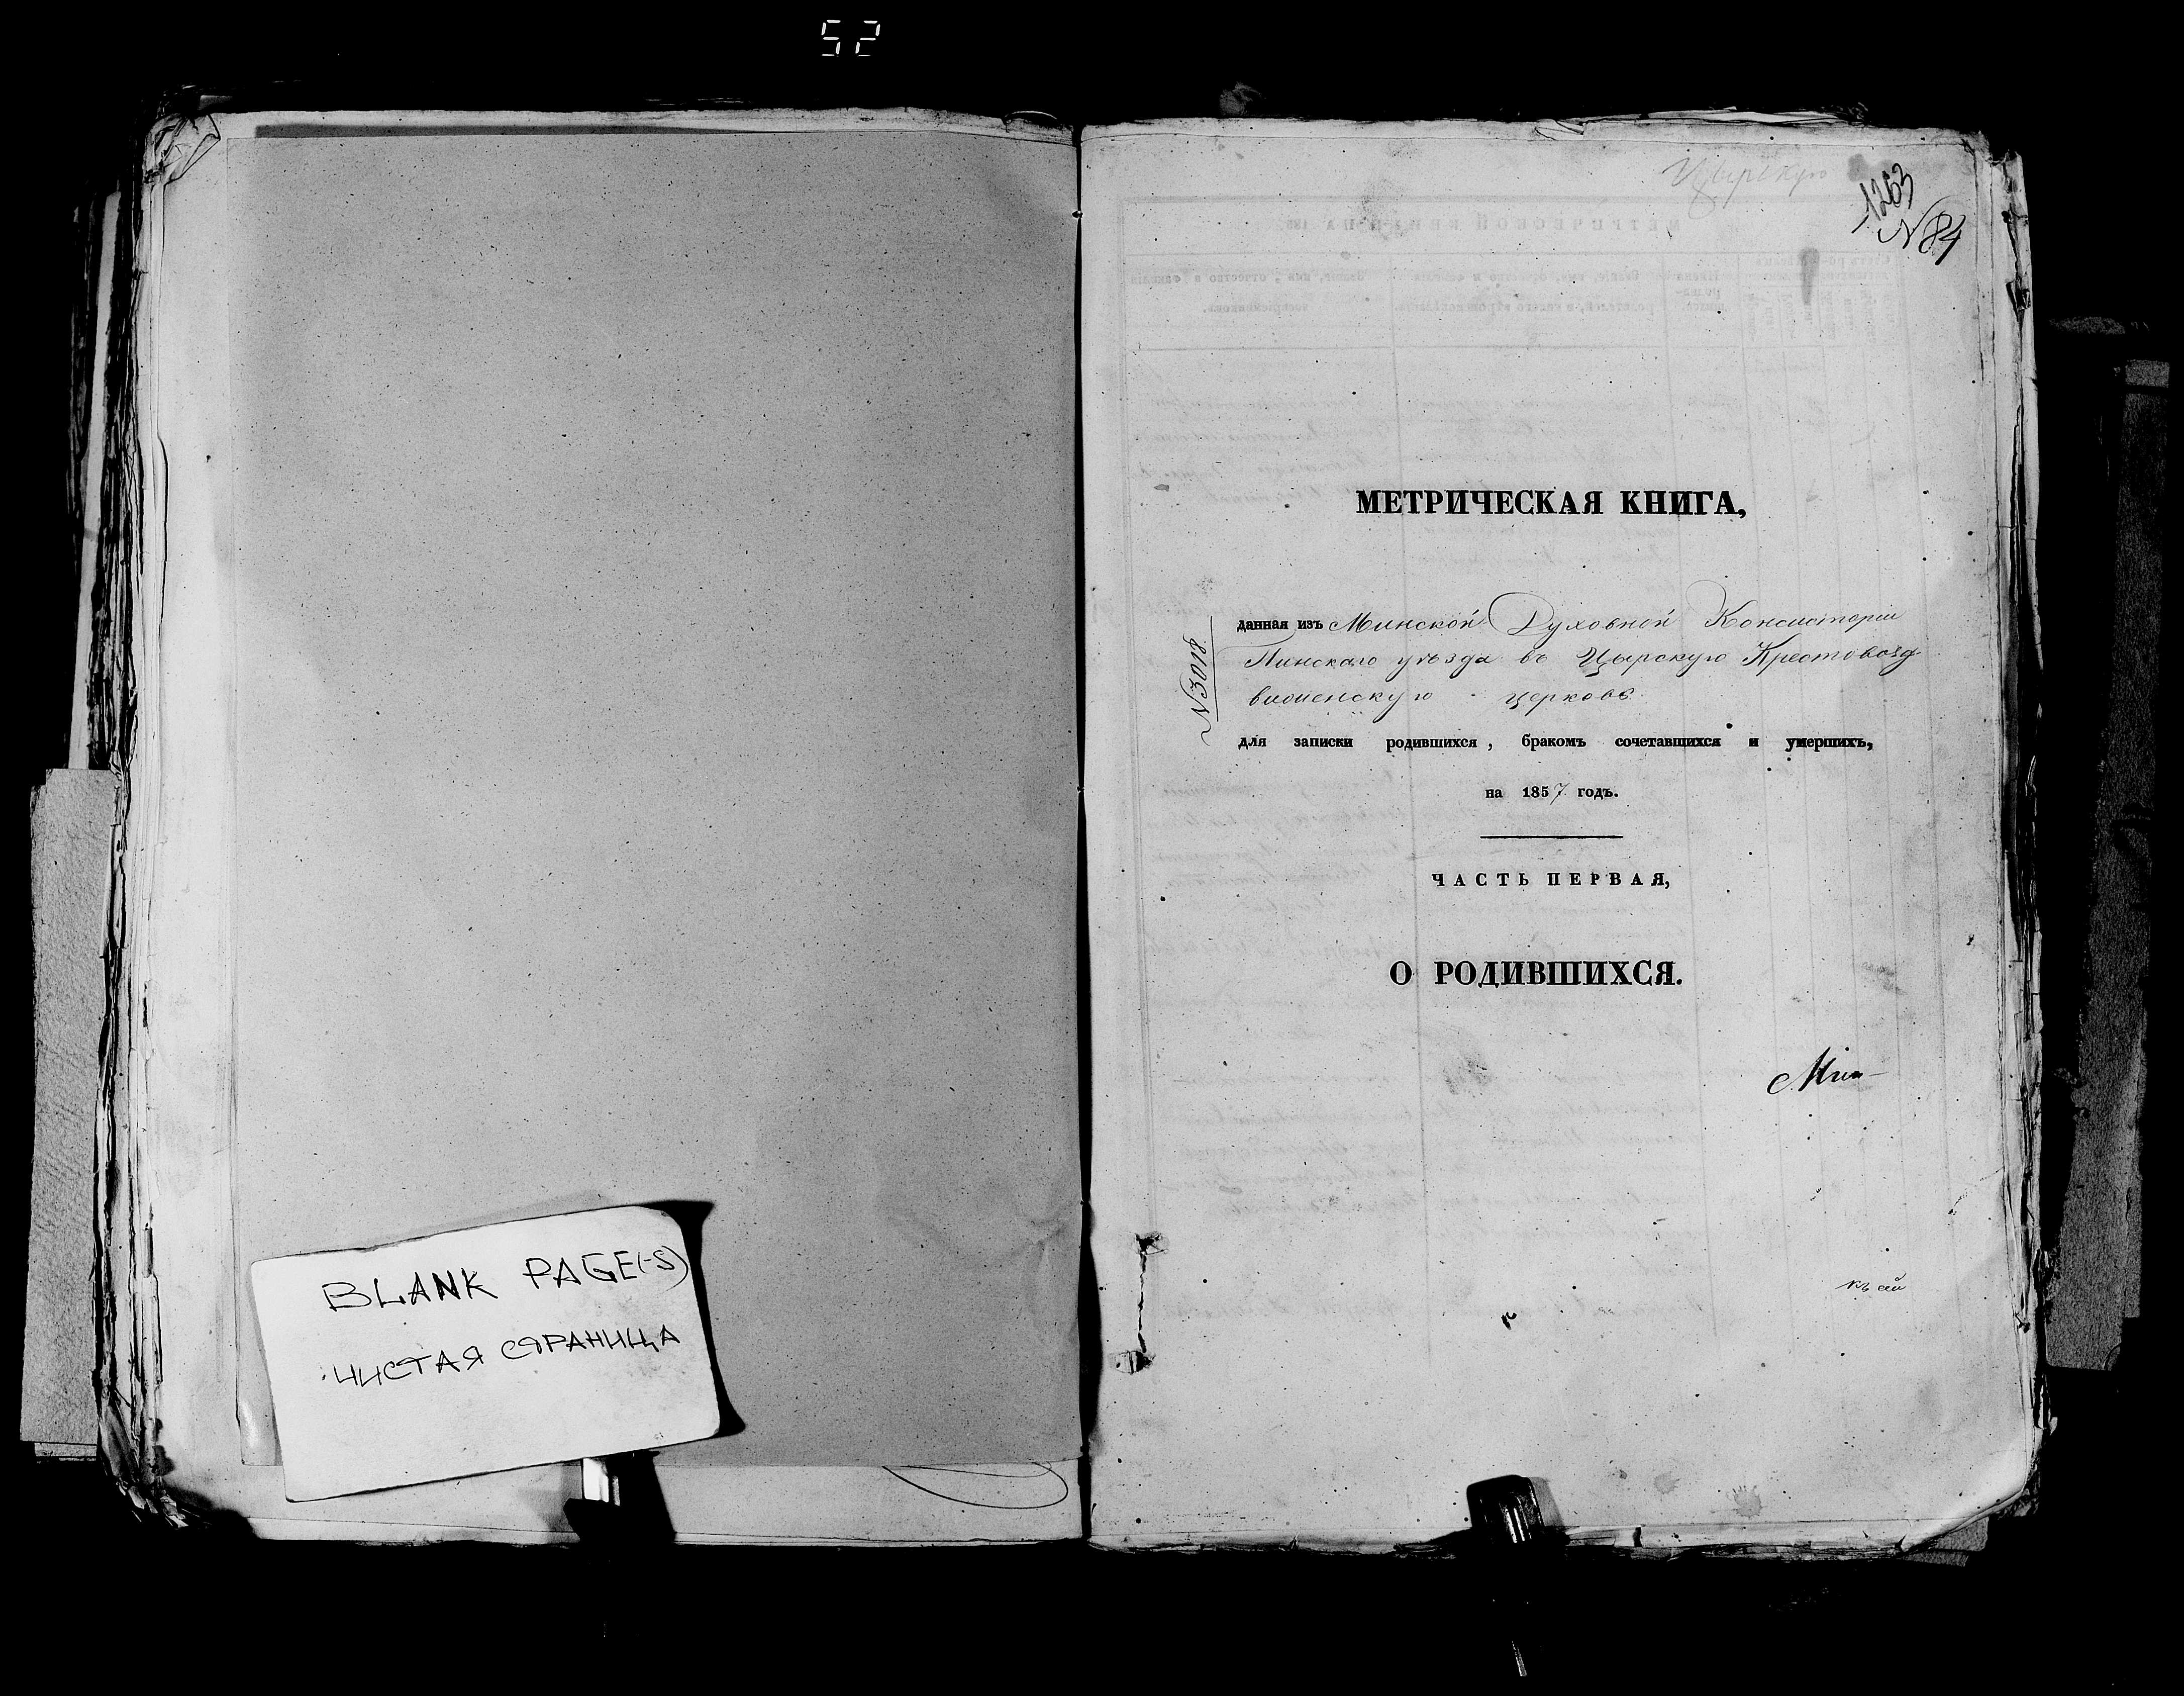 52
BLANK PAGE(-S)
ЧИСТАЯ СТРАНИЦА
Цырскую
1263
№ 84
МЕТРИЧЕСКАЯ КНИГА,
№ 3018
данная изъ Минской Духовной Консисторіи
Пинскаго уѣзда въ Цырскую Крестовозд
виженскую церковь
для записки родившихся, бракомъ сочетавшихся и умершихъ,
на 1857 годъ.
ЧАСТЬ ПЕРВАЯ,
О РОДИВШИХСЯ.
Мин-